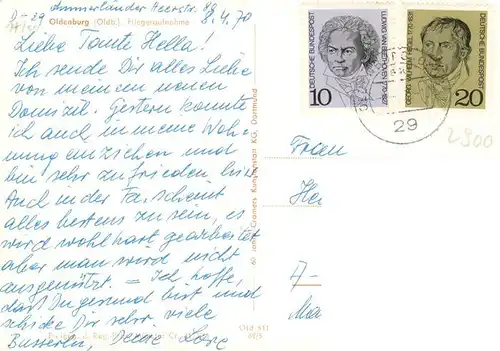 D-29 Ammerländer Heerstr.
Oldenburg (Oldb.) Fliegeraufnahme
8.4.70
Liebe Tante Hella!
Ich sende Dir alles Liebe
von meinem neuen
Domizil. Gestern konnte
ich auch in meine Woh-
nung einziehen und
bin sehr zufrieden
Auch in der Fa. scheint
alles bestens zu sein, es
wird wohl hart gearbeitet
aber man wird nicht
ausgenützt. = Ich hoffe,
dass Du gesund bist und
schicke Dir sehr viele
Busserln, Deine
Cramers Kunstanstalt KG, Dortmund
Old 511
DEUTSCHE BUNDESPOST
LUDWIG VAN BEETHOVEN 1770-1827
10
DEUTSCHE BUNDESPOST
GEORG WILHELM HEGEL 1770-1831
20
29
2900
Frau
He
A-